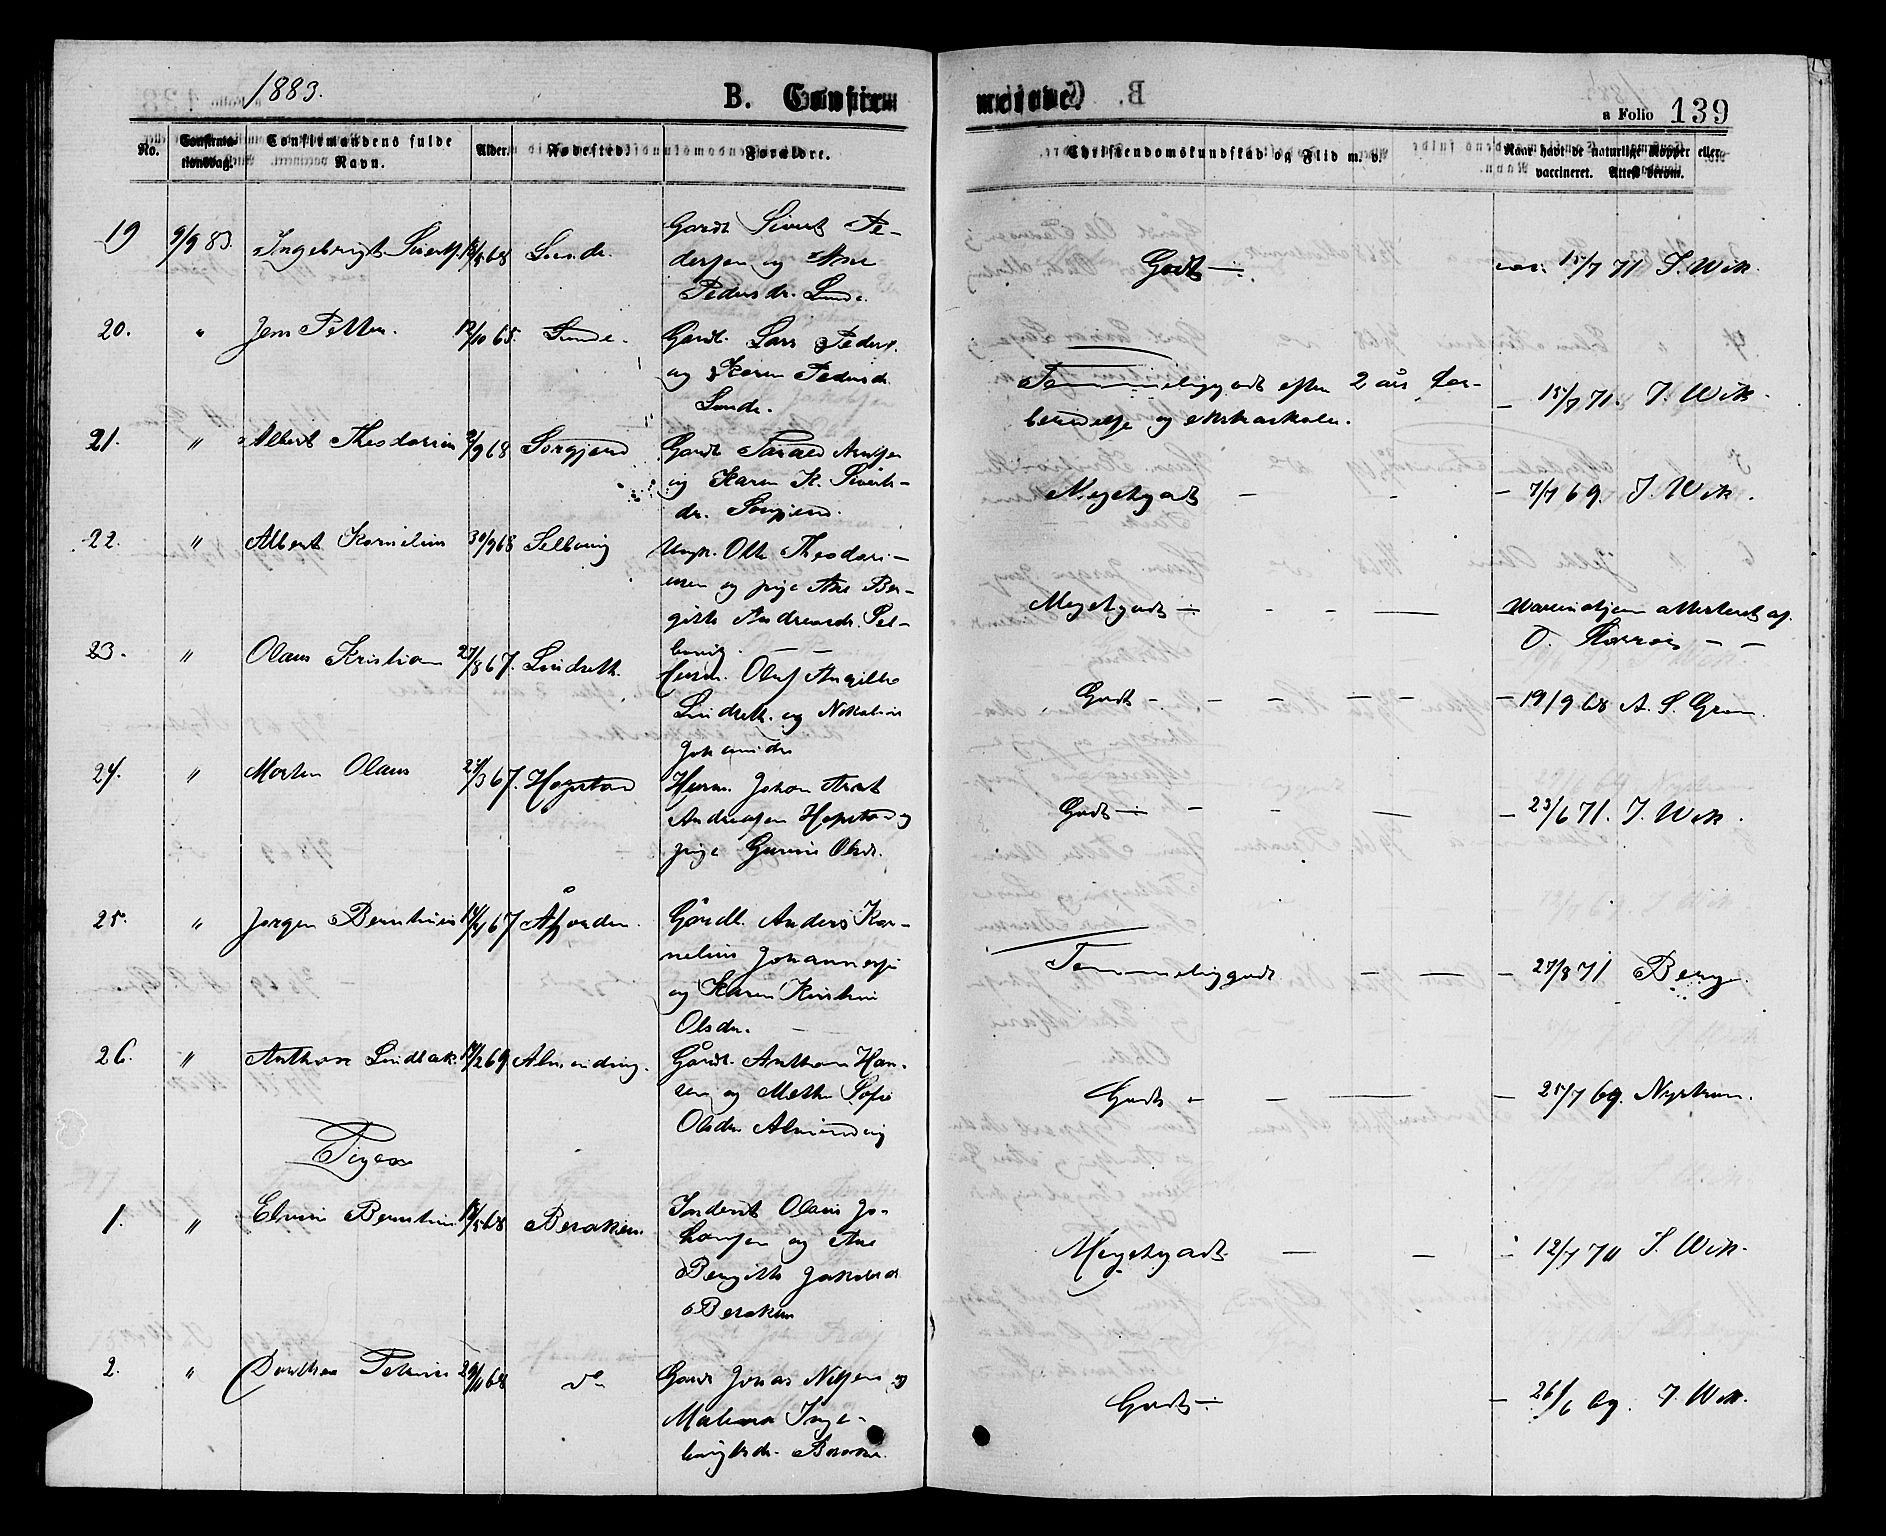 1883.
B. Confirmerede.
a Folio 139
No.
Confirmationsdag.
Confirmandens fulde Navn.
Alder.
Fødested.
Forældre.
Christendomskundskab og Flid m. v.
Naar havt de naturlige Kopper eller vaccineret. Attest derom.
19 9/9 83. Ingebrigt Sivert Sunde.
Gaardb. Sivert Pe-
dersen og Ane
Pedersdr. Sunde.
Godt —
15/7 71 J. Wik.
20. " Jens Petter. 12/10 65. Sunde.
Gaardb. Lars Peders.
og Karen Pedersdr.
Sunde.
Temmeliggodt efter 2 års for-
beredelse og extraskole.
— 15/7 71. J. Wik.
21. " Albert Theodorius 2/9 68
Gaardb.
og Karen K. Siverts-
dr.
Megetgodt — - — 7/7 69. J. Wik.
22. " Albert Kornelius 30/9 68 Selbuvig
Ungk. Ole Theodori-
usen og pige Ane Ber-
gitte Andreasdr. Sel-
buvig.
Megetgodt — - - — Vaccinationen attesteret af
O.
23. " Olaus Kristian 27/8 67. Lindseth.
Husm. Oluf
Lindseth. og Nikoline
Godt - — 19/9 68 A. S. Gram.
24. " Morten Olaus 27/3 67. Hopstad
Husm. Johan Arnt
Andreasen Hopstad og
pige Gurine Olsdr.
Godt — - - — — 23/6 71. J. Wik.
25. " Jørgen Bernhard 67 Åfjorden.
Gårdb. Anders Kor-
nelius Johannesen
og Karen Kirstine
Olsdr.
Temmeliggodt — — — 27/8 71 Berg.
26. " Anthon 2 69 Almenning.
Gårdb. Anthon Han-
sen og Mette Sofie
Olsdr. Almenning
Godt - - — — 25/7 69. Nystrøm.
Piger
1. " 5 68 Berakun.
Inderst Olaus Jo-
hansen og Ane
Bergitte
Berakun
Megetgodt — — 12/7 70 J. Wik.
2. " Dorthea Petrine 29/11 68 do
Gaardb. Jonas Nilsen og
Malena Inge-
brigtsdr.
Godt — — 26/6 69. J. Wik.